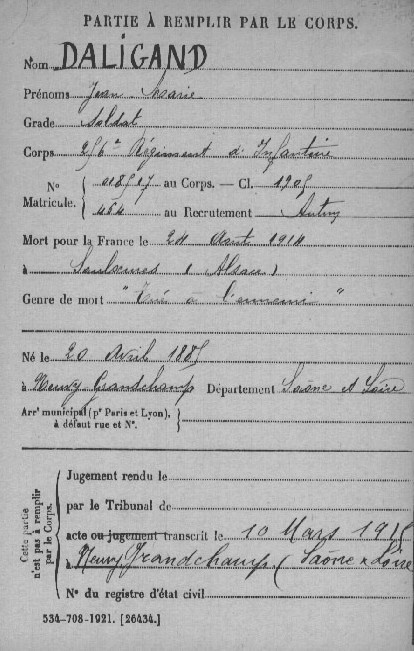 PARTIE À REMPLIR PAR LE CORPS.
Nom DALIGAND
Prénoms Jean Marie
Grade Soldat
Corps 256e Régiment d'Infanterie
No Matricule. 018517 au Corps. — Cl. 1905
464 au Recrutement Autun
Mort pour la France le 24 Août 1914
à (Alsace)
Genre de mort "Tué à l'ennemi"
Né le 20 Avril 1885
à Neuvy Grandchamp Département Saône et Loire
Arrt municipal (pr Paris et Lyon),
à défaut rue et No.
Cette partie n'est pas à remplir par le Corps.
Jugement rendu le
par le Tribunal de
acte ou jugement transcrit le 10 Mars 1915
à Neuvy Grandchamp (Saône & Loire
No du registre d'état civil
534-708-1921. [26434.]